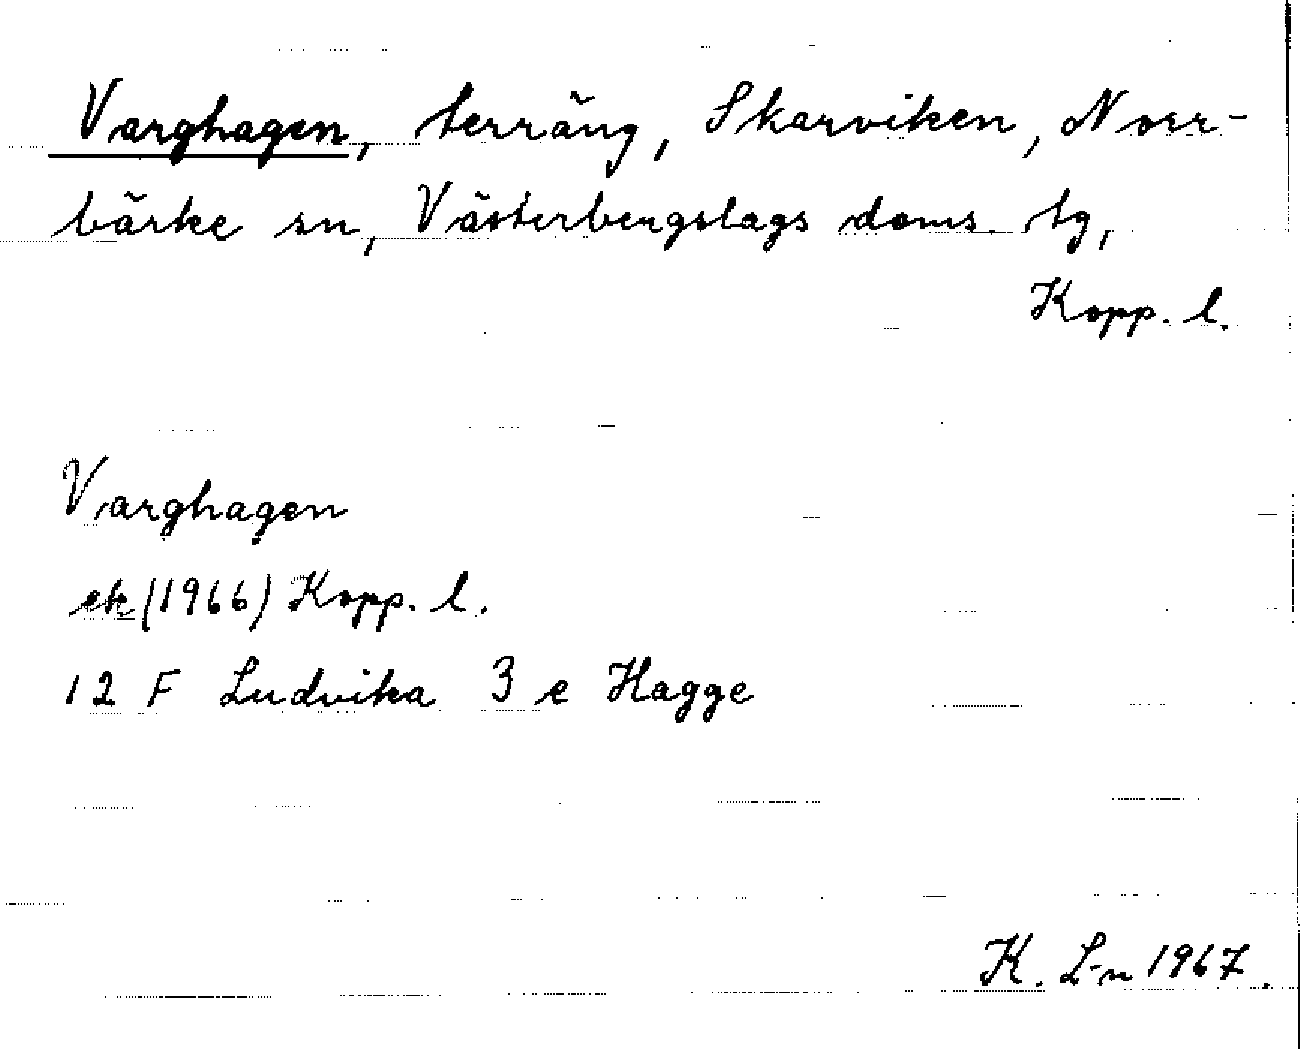 Varghagen, terräng, Skarviken, Norr-
bärke sn, Västerbergslags doms. tg,
Kopp. l.
Varghagen
ek (1966) Kopp. l.
12 F Ludvika 3 e Hagge
K. L-n 1967.